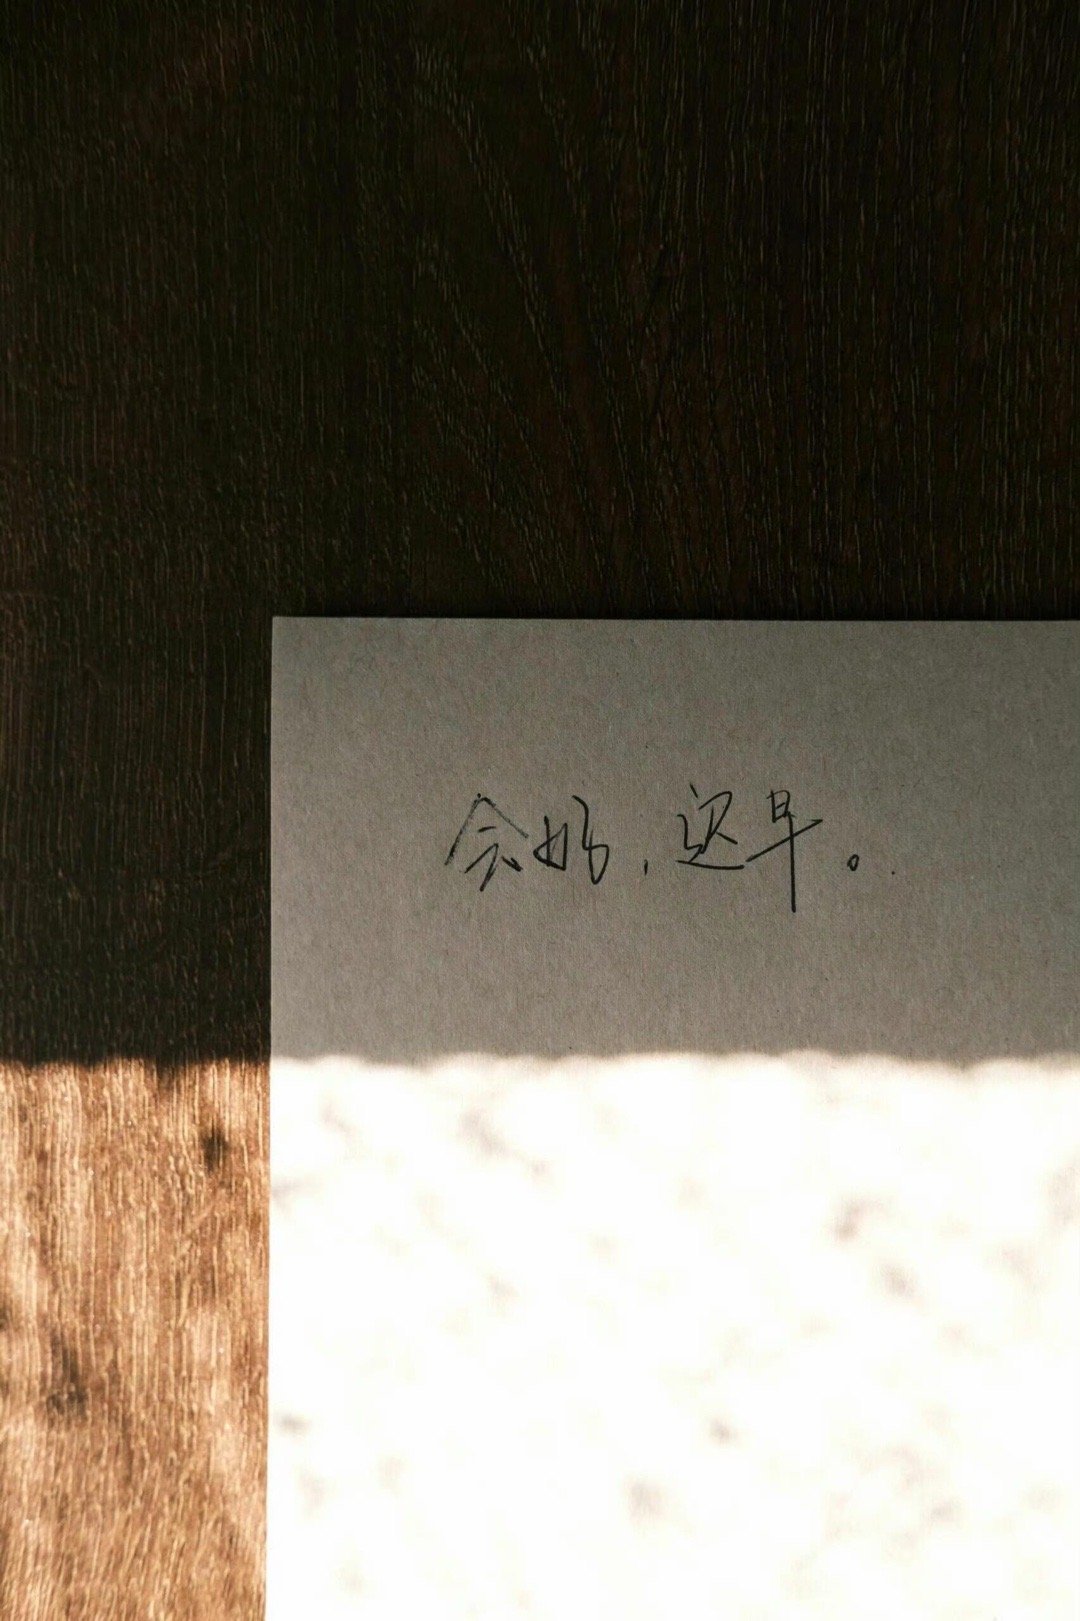 会好,迟早。